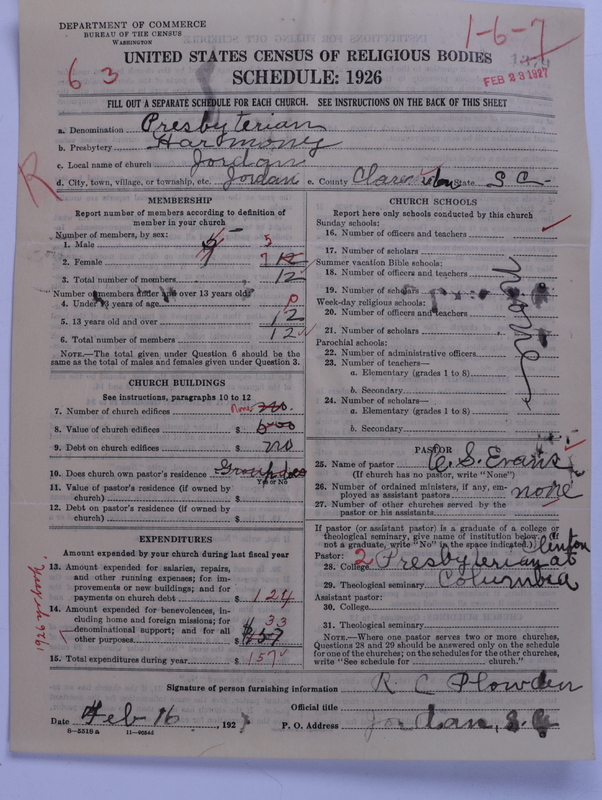 DEPARTMENT OF COMMERCE
BUREAU OF THE CENSUS
WASHINGTON
1-6-7
UNITED STATES CENSUS OF RELIGIOUS BODIES
63
SCHEDULE: 1926
FEB 23 1927
FILL OUT A SEPARATE SCHEDULE FOR EACH CHURCH. SEE INSTRUCTIONS ON THE BACK OF THIS SHEET
a. Denomination Presbyterian
b. Presbytery Harmony
c. Local name of church Jordan
R
d. City, town, village, or township, etc. Jordan e. County Clarendon State S C
MEMBERSHIP
Report number of members according to definition of
member in your church
Number of members, by sex:
1. Male 5
2. Female 7
3. Total number of members 12
Number of members under and over 13 years old:
4. Under 13 years of age 0
5. 13 years old and over 12
6. Total number of members 12
NOTE.—The total given under Question 6 should be
same as the total of males and females given under Question 3.
CHURCH BUILDINGS
See instructions, paragraphs 10 to 12
7. Number of church edifices None no.
8. Value of church edifices $
9. Debt on church edifices $ no
10. Does church own pastor's residence
Yes or No
11. Value of pastor's residence (if owned by
church) $
12. Debt on pastor's residence (if owned by
church) $
EXPENDITURES
Amount expended by your church during last fiscal year
13. Amount expended for salaries, repairs,
and other running expenses; for im-
provements or new buildings; and for
payments on church debt $ 124
14. Amount expended for benevolences, in-
cluding home and foreign missions; for
denominational support; and for all
other purposes $ 33
15. Total expenditures during year $ 157
1926
CHURCH SCHOOLS
Report here only schools conducted by this church
Sunday schools:
16. Number of officers and teachers
17. Number of scholars
Summer vacation Bible schools:
18. Number of officers and teachers
19. Number of scholars
Week-day religious schools:
20. Number of officers and teachers
21. Number of scholars
Parochial schools:
22. Number of administrative officers
23. Number of teachers—
a. Elementary (grades 1 to 8)
b. Secondary
24. Number of scholars—
a. Elementary (grades 1 to 8)
b. Secondary
none
PASTOR
25. Name of pastor C. S. Evans
(If church has no pastor, write "None")
26. Number of ordained ministers, if any, em-
ployed as assistant pastors none
27. Number of other churches served by the
pastor or his assistants
If pastor (or assistant pastor) is a graduate of a college or
theological seminary, give name of institution below. (If
not a graduate, write "No" in the space indicated.)
Pastor:
28. College 2 Presbyterian at Clinton
29. Theological seminary Columbia
Assistant pastor:
30. College
31. Theological seminary
NOTE.—Where one pastor serves two or more churches,
Questions 28 and 29 should be answered only on the schedule
for one of the churches; on the schedules for the other churches,
write "See schedule for ........ church."
Signature of person furnishing information R. C Plowden
Official title
Date Feb 16, 1927 P. O. Address Jordan, S.C.
8-5518 a